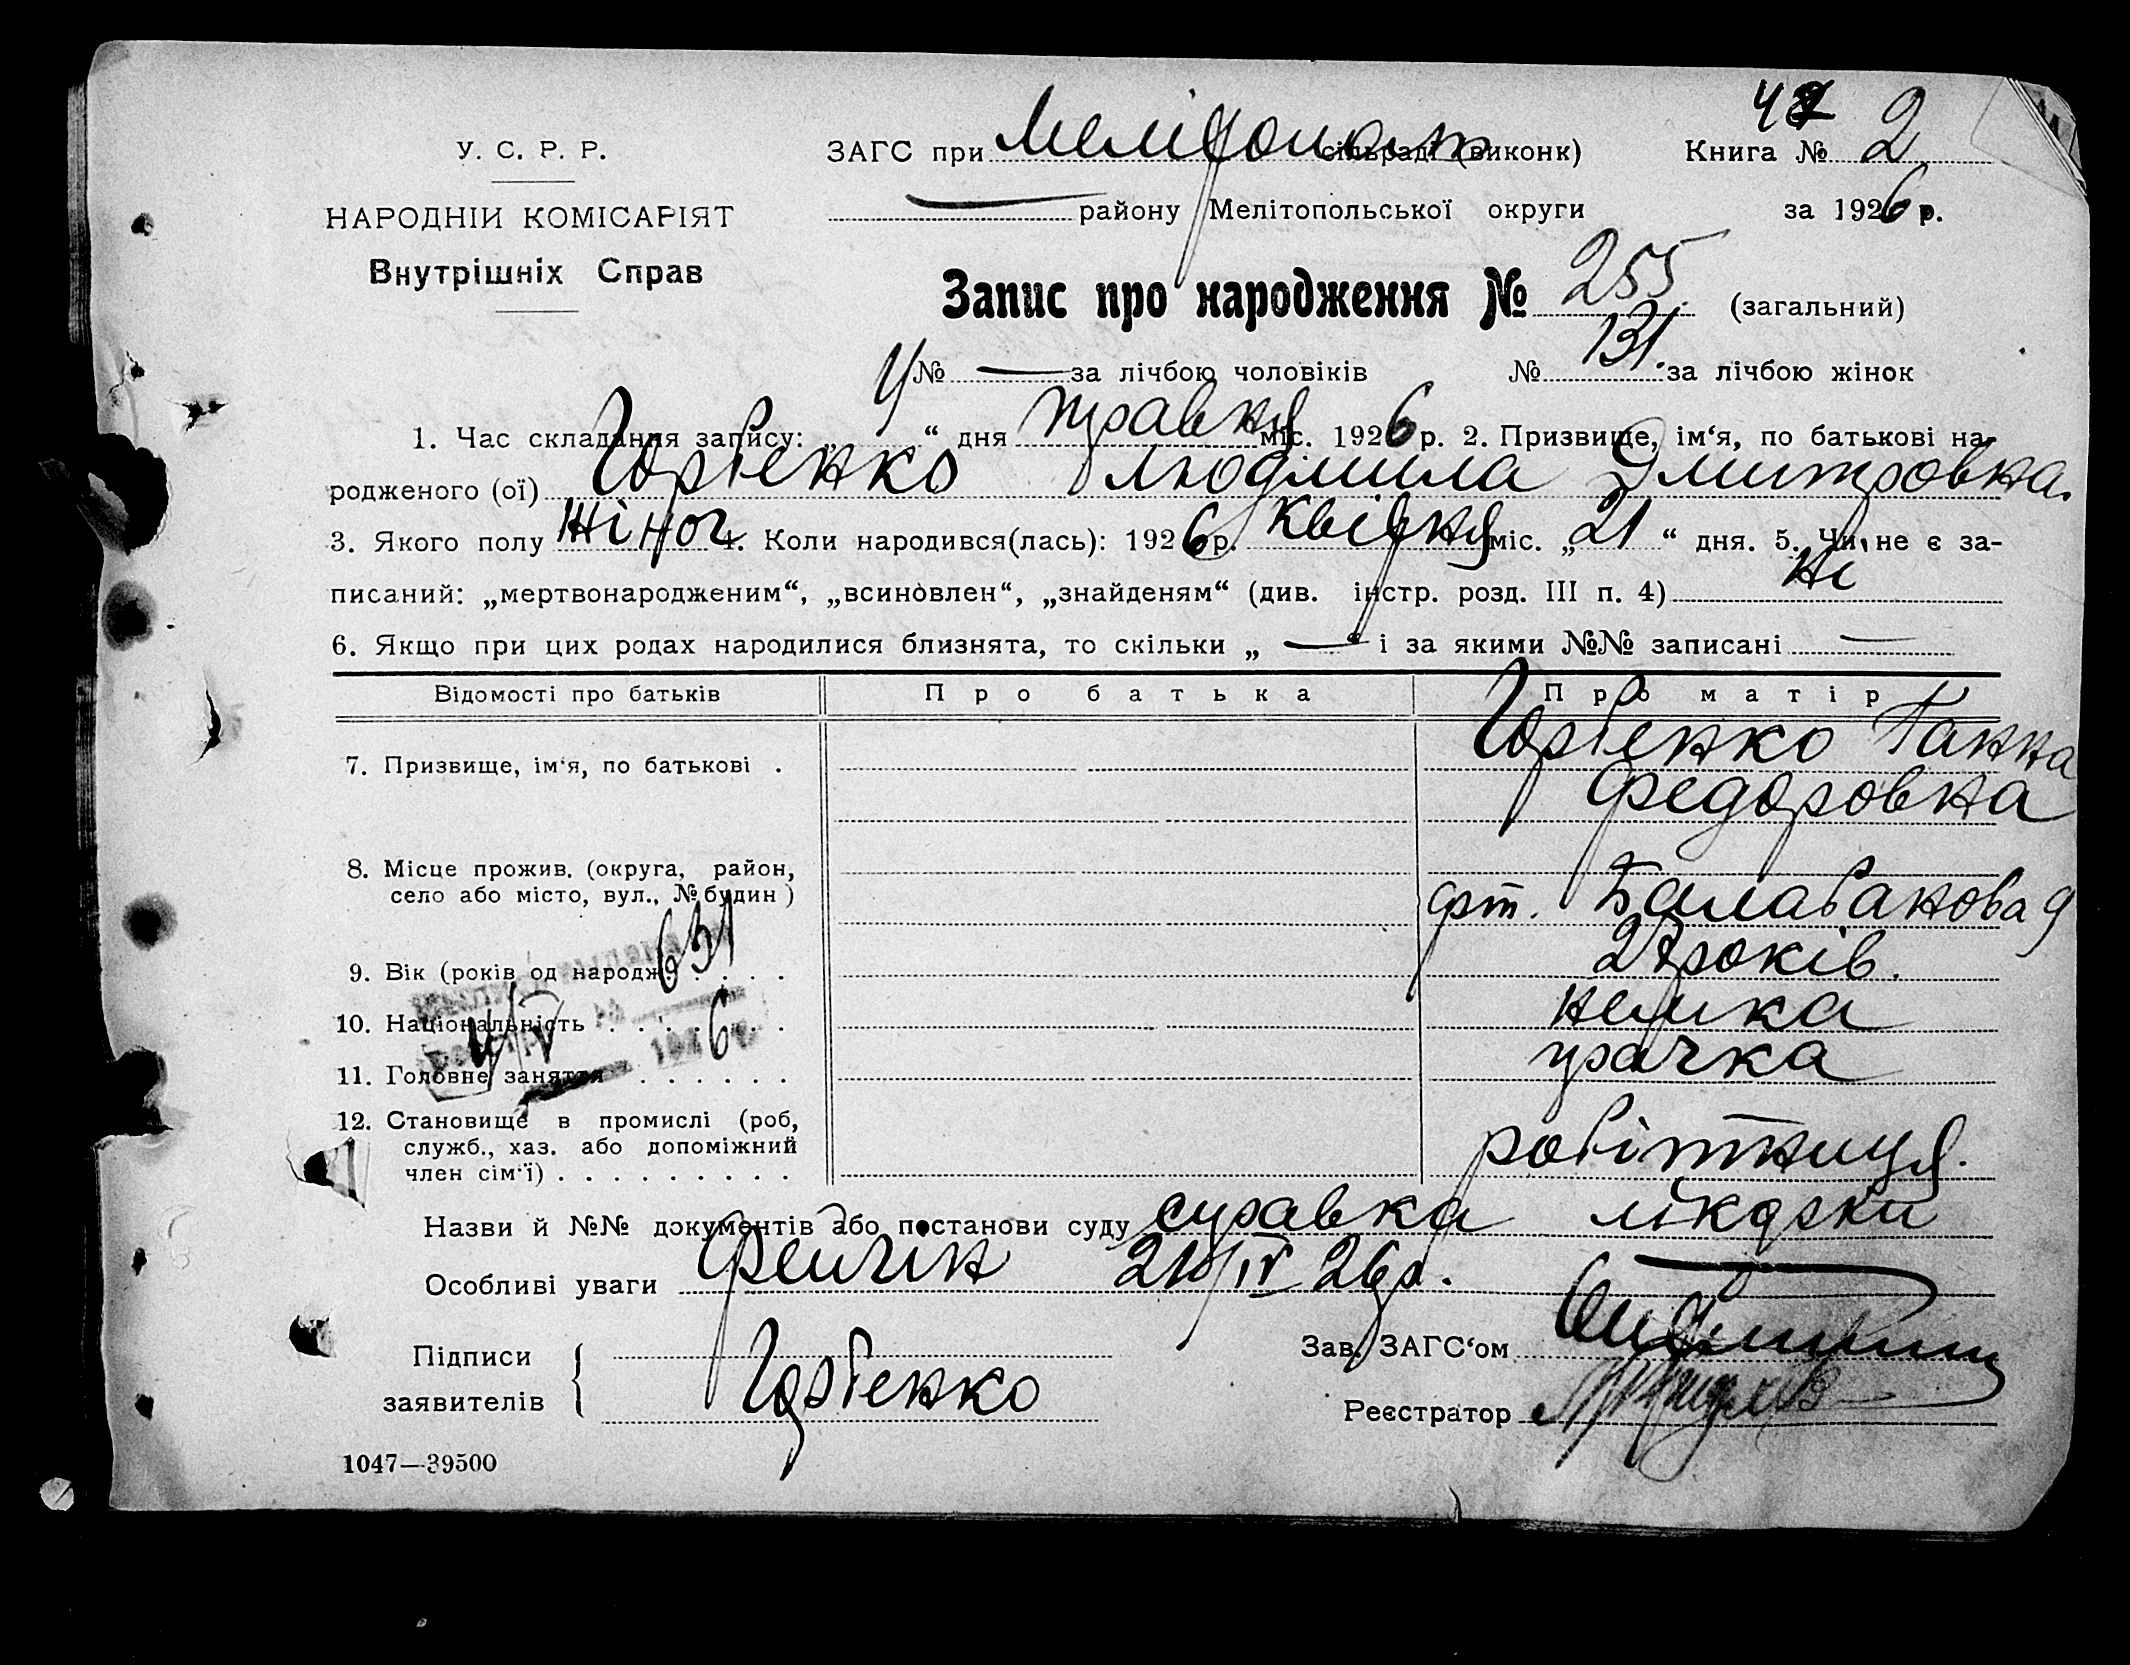 42
У. С. Р. Р.
ЗАГС при сільраді (виконк) Книга № 2
НАРОДНІЙ КОМІСАРІЯТ
району Мелітопольської округи за 1926 р.
Внутрішніх Справ
Запис про народження № 255 (загальний)
№ — за лічбою чоловіків № 131. за лічбою жінок
1. Час складання запису: „ 4 “ дня травня міс. 1926 р. 2. Призвище, ім‘я, по батькові на-
родженого (ої) Горбенко Людмила Дмитровна.
3. Якого полу жіноч 4. Коли народився(лась): 1926 р. квітня міс. „ 21 “ дня. 5. Чи не є за-
писаний: „мертвонародженим“, „всиновлен“, „знайденям“ (див. інстр. розд. III п. 4) Ні
6. Якщо при цих родах народилися близнята, то скільки „ — “ і за якими №№ записані —
Відомості про батьків Про батька Про матір
7. Призвище, ім‘я, по батькові . Горбенко Ганна
Федоровна
8. Місце прожив. (округа, район,
село або місто, вул., № будин ) Балабанова 9
631
9. Вік (років од народж. . . . років.
10. Національність . . . . . . . немка
4/V 1926
11. Головне заняття . . . . . . прачка
12. Становище в промислі (роб,
служб., хаз. або допоміжний
член сім‘ї) . . . . . . . . . робітниця.
Назви й №№ документів або постанови суду справка лікарки
Особливі уваги 21/IV 26 р.
Підписи
заявителів Горбенко
Зав. ЗАГС‘ом
Реєстратор
1047—39500